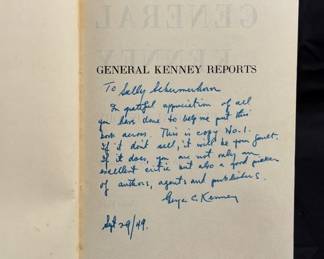 GENERAL
KENNEY
GENERAL KENNEY REPORTS
To Sally Schermerhorn
In grateful appreciation of all
you have done to help me put this
book across. This is copy No. 1.
If it don't sell, it will be your fault.
If it does, you are not only an
excellent critic but also a good picker
of authors, agents and publishers.
George C. Kenney
Sept 29/49.